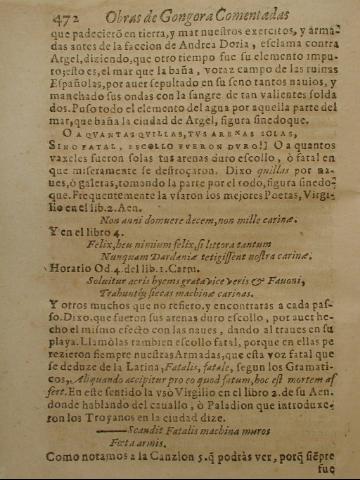 472 Obras de Gongora Comentadas
que padecierõ en tierra, y mar nuestros exercitos, y arma-
das antes de la faccion de Andrea Doria, esclama contra
Argel, diziendo, que otro tiempo fue su elemento impu-
ro; esto es, el mar que la baña, voraz campo de las ruinas
Españolas, por auer sepultado en su seno tantos nauios, y
manchado sus ondas con la sangre de tan valientes solda
dos. Puso todo el elemento del agua por aquella parte del
mar, que baña la ciudad de Argel, figura sinedoque.
O A QVANTAS QVILLAS, TVS ARENAS SOLAS,
SINO FATAL, ESCOLLO FVERON DVRO!] O a quantos
vaxeles fueron solas tus arenas duro escollo, ò fatal en
que miseramente se destroçaron. Dixo quillas por na-
ues, ò galeras, tomando la parte por el todo, figura sinedo-
que. Frequentemente la vsaron los mejores Poetas, Virgi-
lio en el lib. 2. Aen.
Non anni domuere decem, non mille carinæ.
Y en el libro 4.
Felix, heu nimium felix, si littora tantum
Nunquam Dardaniæ tetigissent nostra carinæ.
Horatio Od. 4. del lib. 1. Carm.
Soluitur acris hyems grata vice veris & Fauoni,
Trahuntq; siccas machinæ carinas.
Y otros muchos que no refiero, y encontraras a cada pas-
so. Dixo que fueron sus arenas duro escollo, por auer he-
cho el mismo efecto con las naues, dando al traues en su
playa. Llamòlas tambien escollo fatal, porque en ellas pe
rezieron siempre nuestras Armadas, que esta voz fatal que
se deduze de la Latina, Fatalis, fatale, segun los Gramati-
cos, Aliquando accipitur pro eo quod fatum, hoc est mortem af
fert. En este sentido la vsò Virgilio en el libro 2. de su Aen.
donde hablando del cauallo, ò Paladion que introduxe-
ron los Troyanos en la ciudad dize.
——Scandit Fatalis machina muros
Fœta armis.
Como notamos a la Canzion 5. q̃ podràs ver, porq̃ siẽpre
fue